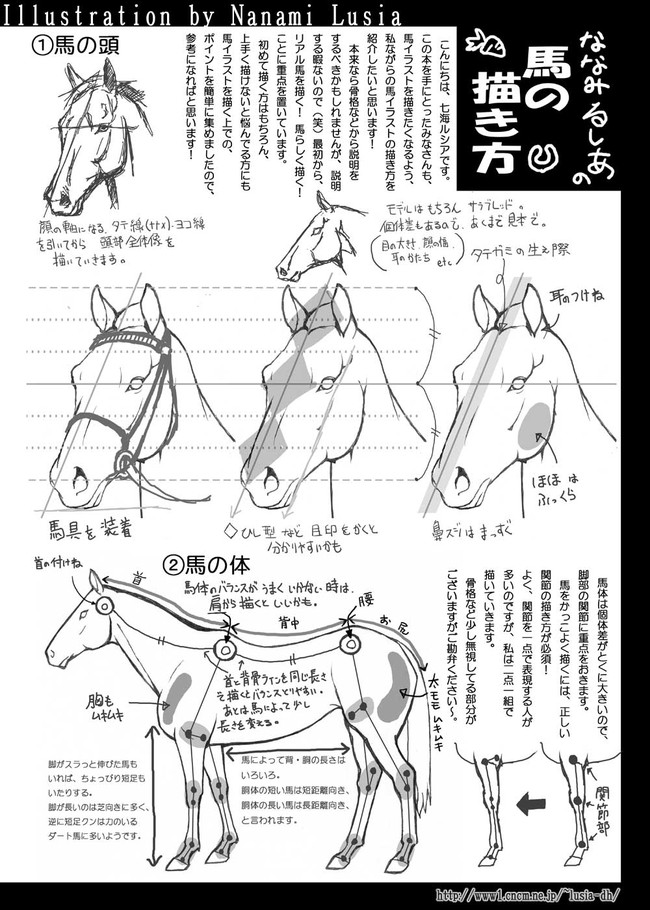 Illustration by Nanami Lusia
ななみるしあの
馬の
描き方
こんにちは、七海ルシアです。
この本を手にとったみなさんも、
馬イラストを描きたくなるよう、
私ながらの馬イラストの描き方を
紹介したいと思います！
本来なら骨格などから説明を
するべきかもしれませんが、説明
する暇ないので（笑）最初から、
リアル馬を描く！馬らしく描く！
ことに重点を置いています。
初めて描く方はもちろん、
上手く描けないと悩んでる方にも
馬イラストを描く上での、
ポイントを簡単に集めましたので、
参考になればと思います！
①馬の頭
顔の軸になる、タテ線(ナナメ)・ヨコ線
を引いてから 頭部全体像を
描いていきます。
モデルはもちろん サラブレッド。
個体差もあるので、あくまで見本で。
(目の大きさ、顔の幅、
耳のかたち etc)
タテガミの生え際
耳のつけね
ほほは
ふっくら
馬具を装着
◇ひし型など目印をかくと
分かりやすいかも
鼻スジはまっすぐ
②馬の体
首の付けね
首
馬体のバランスがうまくいかない時は、
肩から描くといいかも。
背中
腰
お尻
首と背骨ラインを同じ長さ
で描くとバランスとりやすい。
あとは馬によって少し
長さを変える。
胸も
ムキムキ
太モモムキムキ
脚がスラっと伸びた馬も
いれば、ちょっぴり短足も
いたりする。
脚が長いのは芝向きに多く、
逆に短足クンは力のいる
ダート馬に多いようです。
馬によって背・胴の長さは
いろいろ。
胴体の短い馬は短距離向き、
胴体の長い馬は長距離向き、
と言われます。
馬体は個体差がとくに大きいので、
脚部の関節に重点をおきます。
馬をかっこよく描くには、正しい
関節の描き方が必須！
よく、関節を一点で表現する人が
多いのですが、私は二点一組で
描いていきます。
骨格など少し無視してる部分が
ございますがご勘弁ください～。
関節部
http://www1.cncm.ne.jp/~lusia-dh/